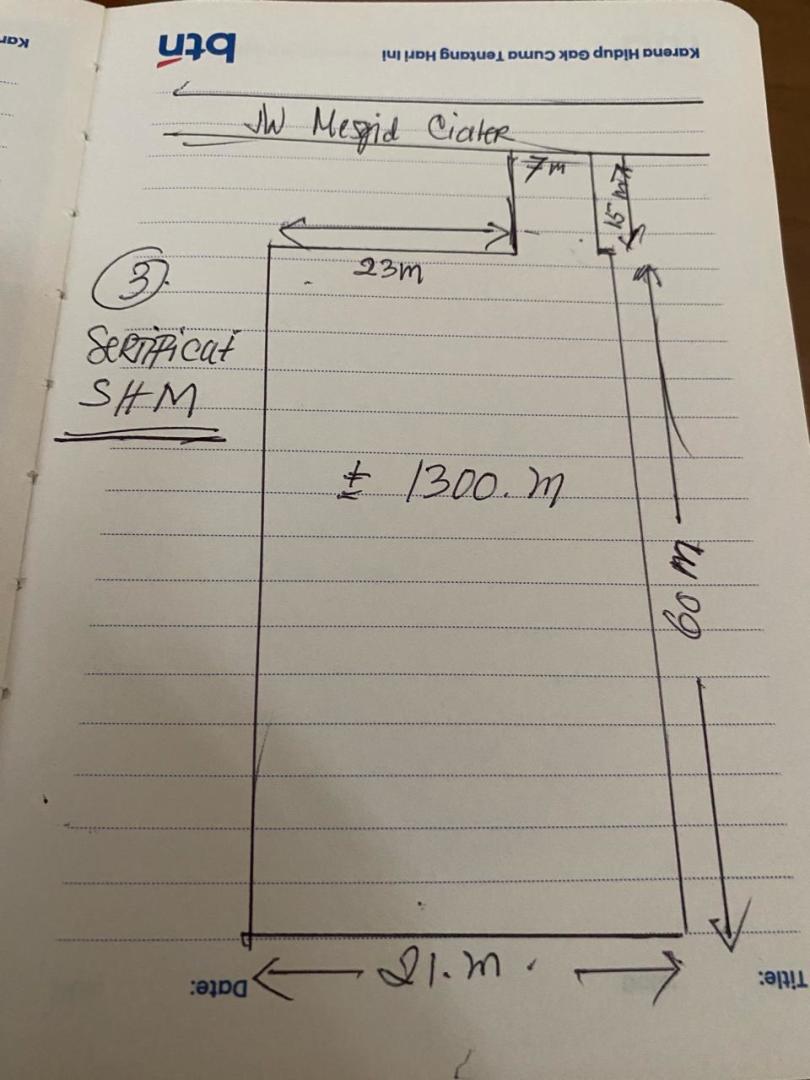 Karena Hidup Gak Cuma Tentang Hari Ini
btn
JW Mesjid Ciater
7m
15 m
23m
3.
SERTIFICAT
SHM
± 1300. m
60 m
21. m.
Title:
Date: